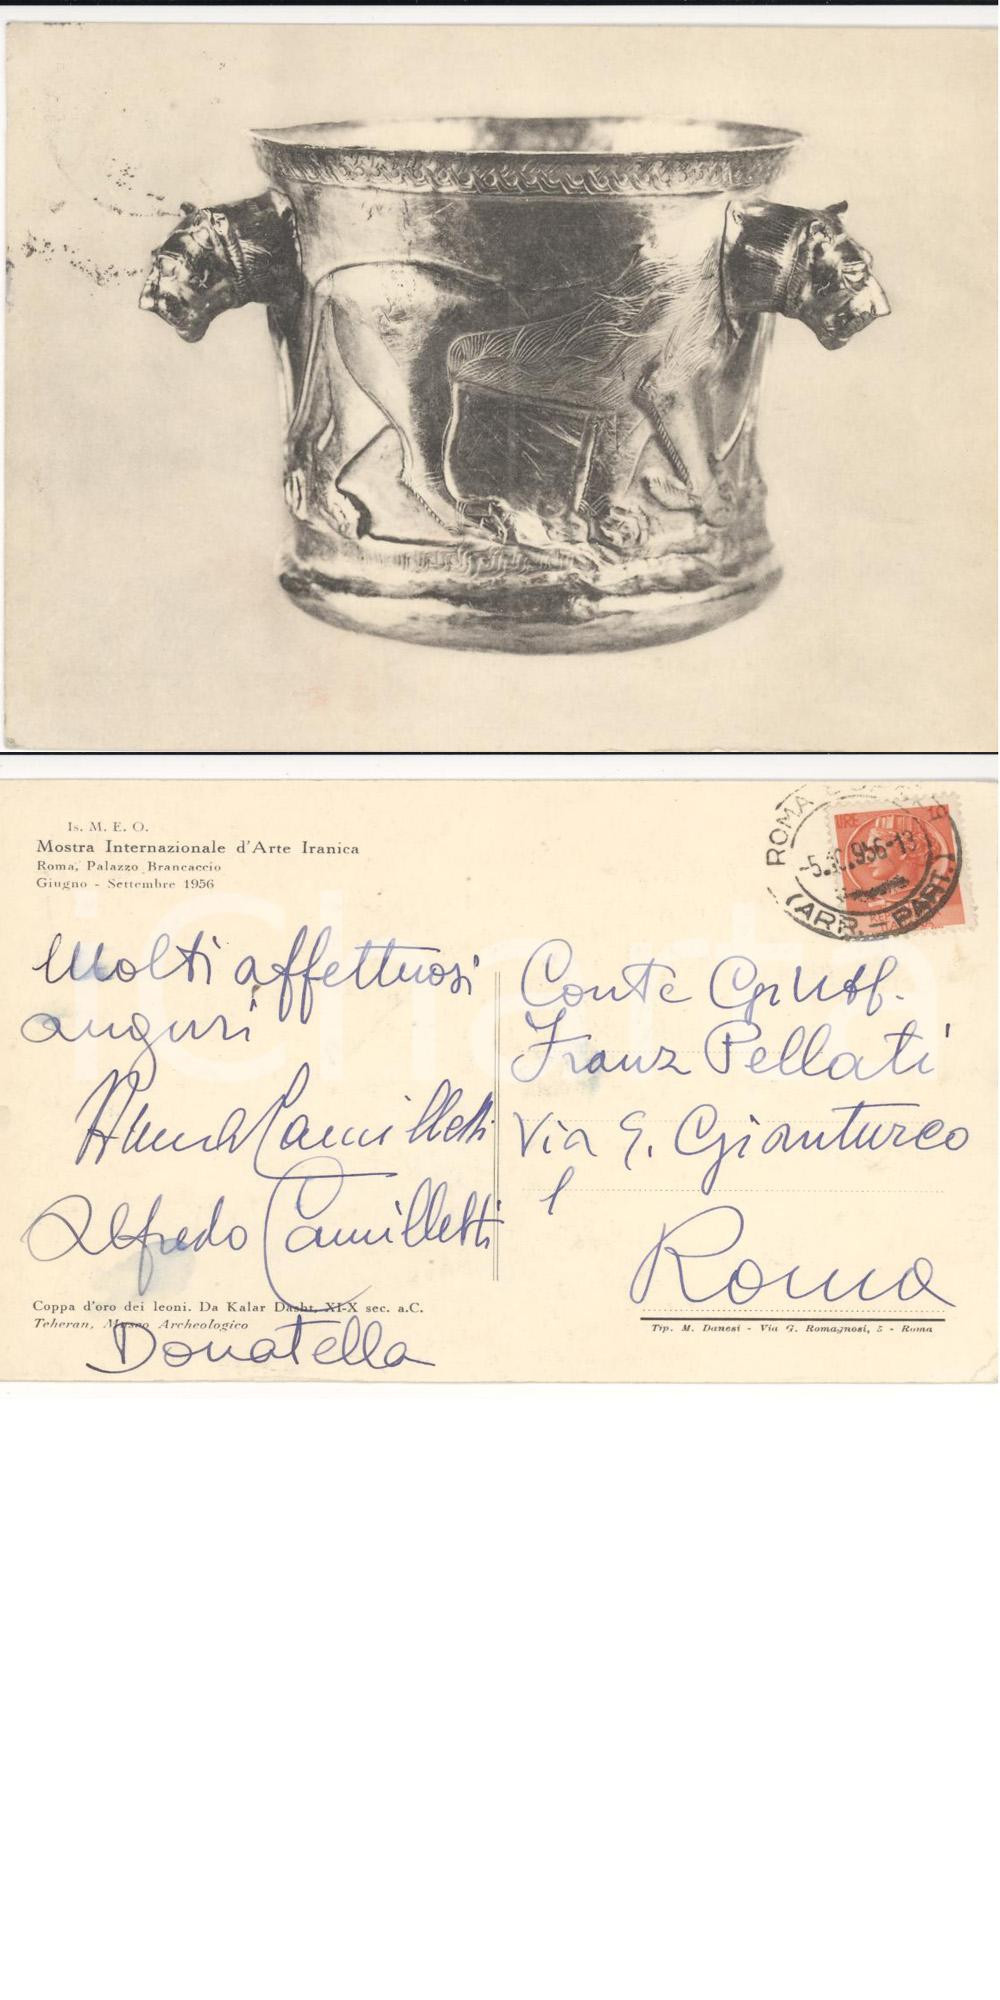 Is. M. E. O.
Mostra Internazionale d'Arte Iranica
Roma, Palazzo Brancaccio
Giugno - Settembre 1956
ROMA
-5. 1956-13
(ARR. - PART.)
LIRE 10
Molti affettuosi
auguri
Camilletti
Alfredo Camilletti
Donatella
Conte Gr Uff.
Franz Pellati
Via E. Gianturco
1
Roma
Coppa d'oro dei leoni. Da Kalar Dasht, XI-X sec. a.C.
Teheran, Museo Archeologico
Tip. M. Danesi - Via G. Romagnosi, 5 - Roma
iCharta